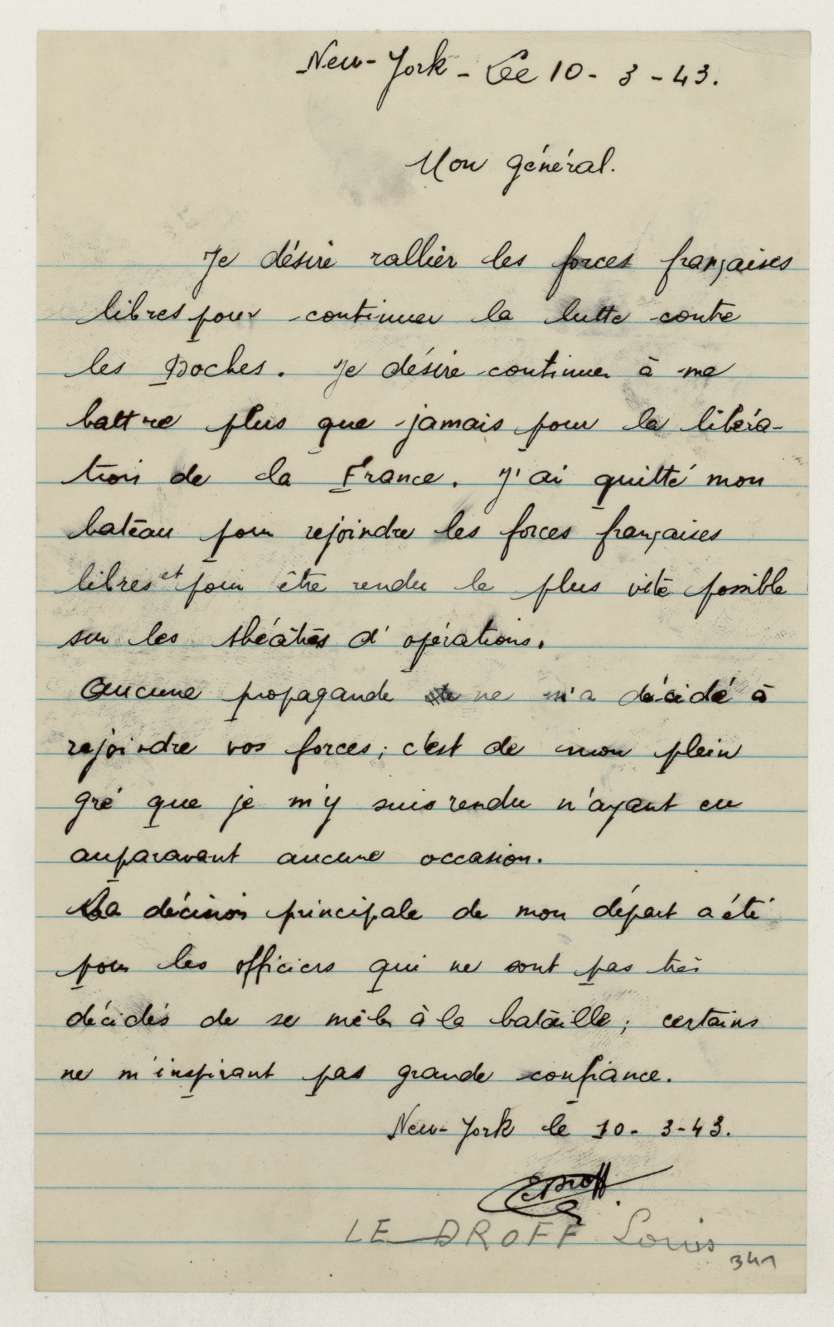 New-York - Le 10 - 3 - 43.
Mon général.
Je désire rallier les forces françaises
libres pour continuer la lutte contre
les Boches. Je désire continuer à me
battre plus que jamais pour la libéra-
tion de la France. J'ai quitté mon
bateau pour rejoindre les forces françaises
libres et pour être rendu le plus vite possible
sur les théâtres d'opérations.
Aucune propagande ne m'a décidé à
rejoindre vos forces; c'est de mon plein
gré que je m'y suis rendu n'ayant eu
auparavant aucune occasion.
La décision principale de mon départ a été
pour les officiers qui ne sont pas très
décidés de se mêler à la bataille; certains
ne m'inspirant pas grande confiance.
New-York le 10 - 3-43.
LE DROFF Louis
341